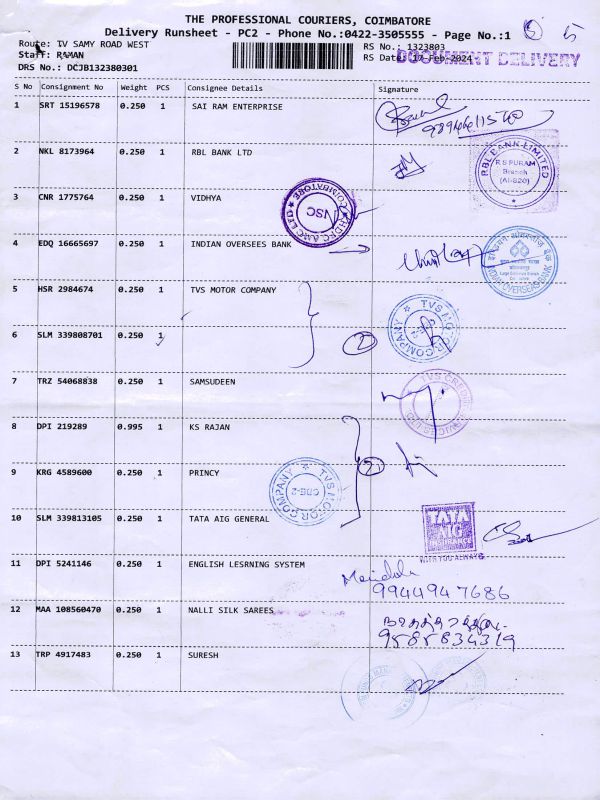 THE PROFESSIONAL COURIERS, COIMBATORE
Delivery Runsheet - PC2 - Phone No.:0422-3505555 - Page No.:1
5
Route: TV SAMY ROAD WEST
RS No.: 1323803
Staff: RAMAN
RS Date: 17-Feb-2024
DOCUMENT DELIVERY
DRS No.: DCJB132380301
S No Consignment No Weight PCS Consignee Details Signature
1 SRT 15196578 0.250 1 SAI RAM ENTERPRISE
2 NKL 8173964 0.250 1 RBL BANK LTD
RBL BANK LIMITED
R S PURAM
Branch
(AI-820)
3 CNR 1775764 0.250 1 VIDHYA
HDFC AMC LTD COIMBATORE
ISC
4 EDQ 16665697 0.250 1 INDIAN OVERSEES BANK
INDIAN OVERSEAS BANK
5 HSR 2984674 0.250 1 TVS MOTOR COMPANY
TVS MOTOR COMPANY
6 SLM 339808701 0.250 1
2
7 TRZ 54068838 0.250 1 SAMSUDEEN
TVS CREDIT SERVICES LTD
8 DPI 219289 0.995 1 KS RAJAN
2
9 KRG 4589600 0.250 1 PRINCY
TVS MOTOR COMPANY
CBE-2
10 SLM 339813105 0.250 1 TATA AIG GENERAL
TATA
AIG
INSURANCE
WITH YOU ALWAYS
11 DPI 5241146 0.250 1 ENGLISH LESRNING SYSTEM
9944947686
12 MAA 108560470 0.250 1 NALLI SILK SAREES
9585834319
13 TRP 4917483 0.250 1 SURESH